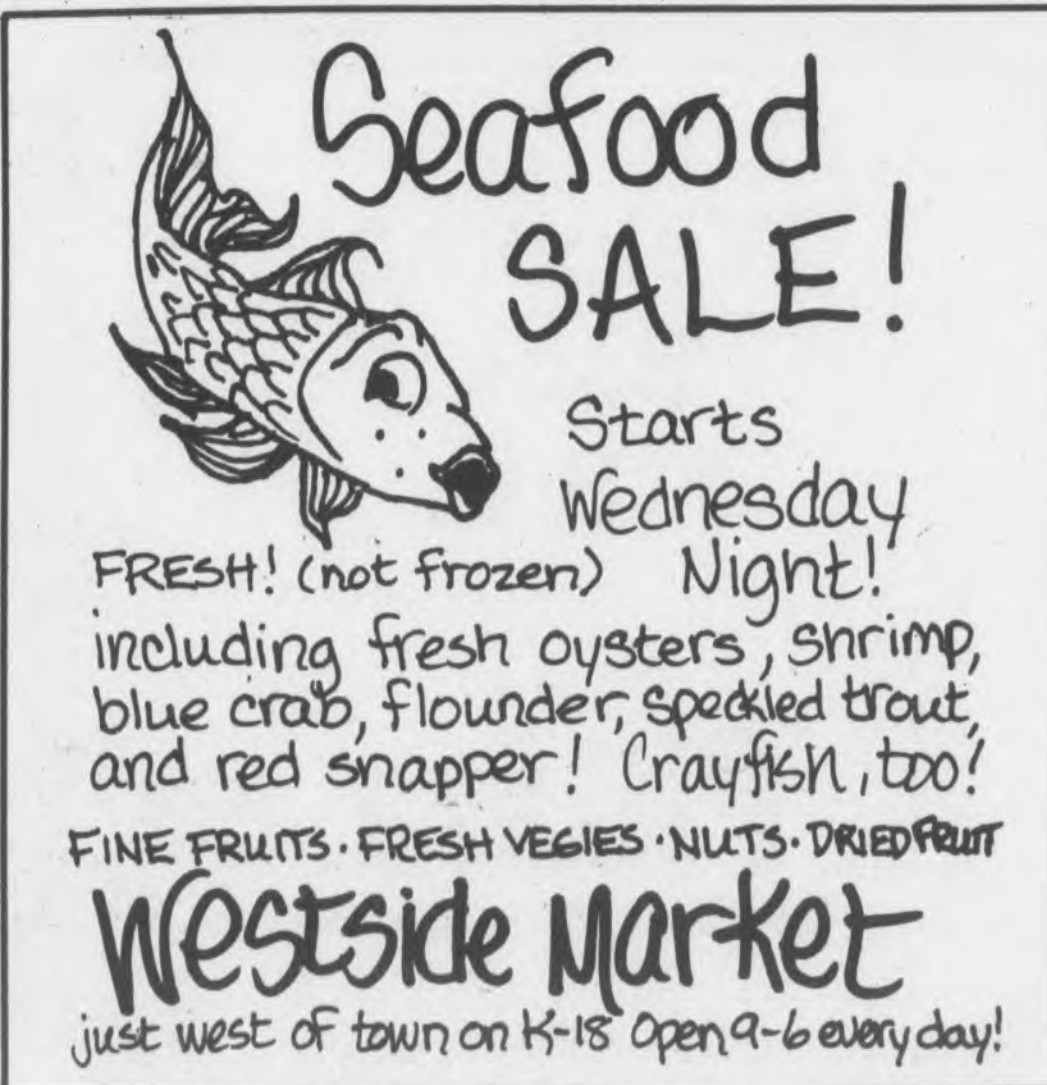 Seafood
SALE!
Starts
Wednesday
Night!
FRESH! (not frozen)
including fresh oysters, shrimp,
blue crab, flounder, speckled trout,
and red snapper! Crayfish, too!
FINE FRUITS · FRESH VEGIES · NUTS · DRIED FRUIT
Westside Market
just west of town on K-18 Open 9-6 every day!